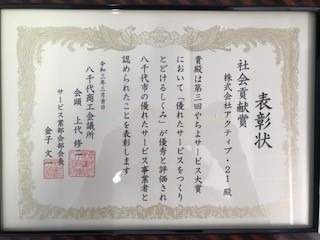 表彰状
社会貢献賞
株式会社アクティブ・21 殿
貴殿は第三回やちよサービス大賞
において「優れたサービスをつくり
とどけるしくみ」が優秀と評価され
八千代市の優れたサービス事業者と
認められたことを表彰します
令和三年三月吉日
八千代商工会議所
会頭 上代 修二
サービス業部会部会長
金子 文一